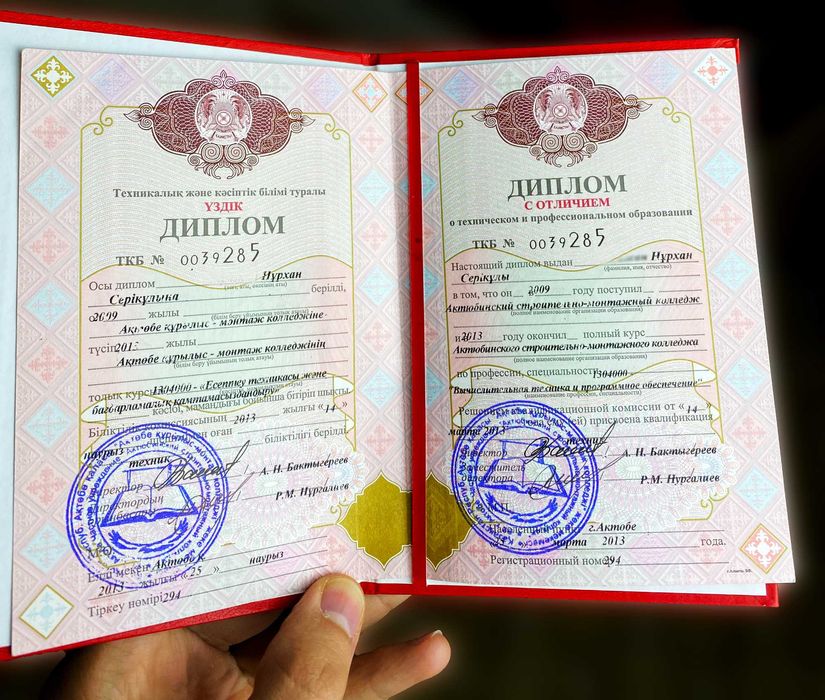 Техникалық және кәсіптік білімі туралы
ҮЗДІК
ДИПЛОМ
ТКБ № 0039285
Осы диплом Нұрхан
Серікұлына берілді,
2009 жылы
Ақтөбе құрылыс - монтаж колледжіне
түсіп 2013 жылы
Ақтөбе құрылыс - монтаж колледжінің
(білім беру ұйымының толық атауы)
толық курсы 1304000 - «Есептеу техникасы және
бағдарламалық қамтамасыздандыру»
кәсіп, мамандығы бойынша бітіріп шықты.
Біліктілік комиссиясының 2013 жылғы «14»
наурыз оған біліктілігі берілді.
техник
Директор А. Н. Бактыгереев
Директордың Р.М. Нургалиев
орынбасары
М.О.
Елді мекен Ақтөбе қ.
2013 жылғы «25» наурыз
Тіркеу нөмірі 294
ДИПЛОМ
С ОТЛИЧИЕМ
о техническом и профессиональном образовании
ТКБ № 0039285
Настоящий диплом выдан Нұрхан
(фамилия, имя, отчество)
Серікұлы
в том, что он 2009 году поступил
Актюбинский строительно-монтажный колледж
(полное наименование организации образования)
и 2013 году окончил полный курс
Актюбинского строительно-монтажного колледжа
(полное наименование организации образования)
по профессии, специальности 1304000 -
"Вычислительная техника и программное обеспечение"
Решением квалификационной комиссии от «14»
марта 2013 присвоена квалификация
Директор А. Н. Бактыгереев
Заместитель
директора Р.М. Нургалиев
М.П.
Населенный пункт г.Актобе
марта 2013 года.
Регистрационный номер 294